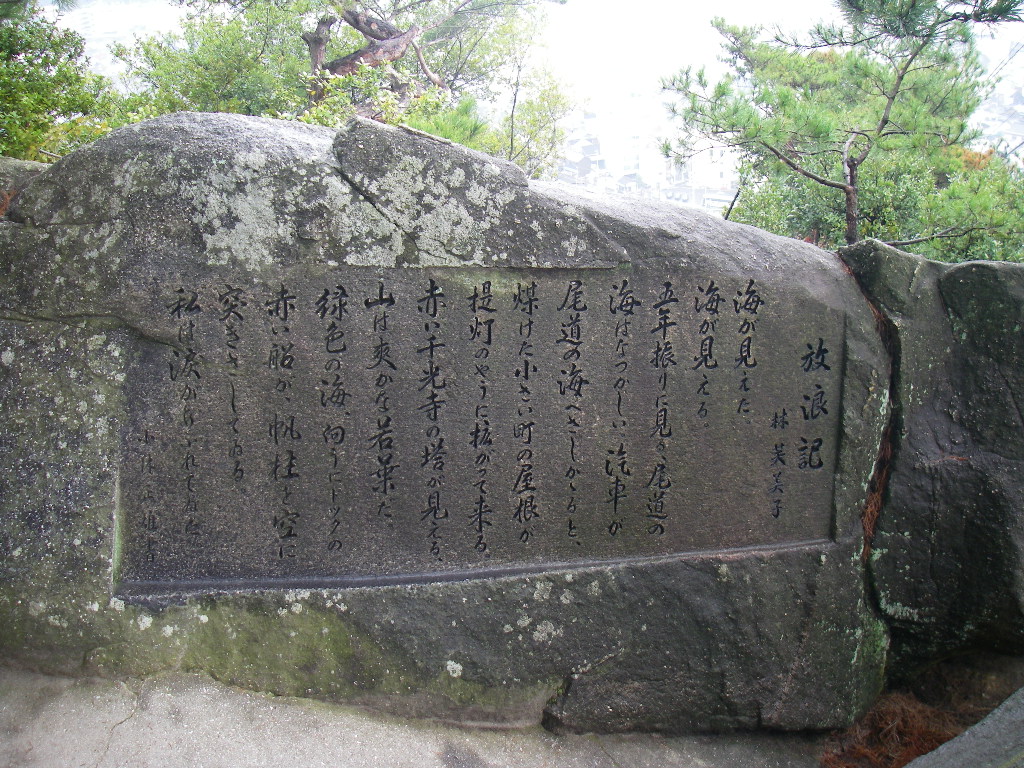 放浪記
林芙美子
海が見えた
海が見える
五年振りに見る尾道の
海はなつかしい、汽車が
尾道の海へさしかゝると、
煤けた小さい町の屋根が
提灯のやうに拡がって来る、
赤い千光寺の塔が見える、
山は爽かな若葉だ、
緑色の海、向うにドックの
赤い船が、帆柱を空に
突きさしてゐる
私は涙があふれてゐた
小林正雄書